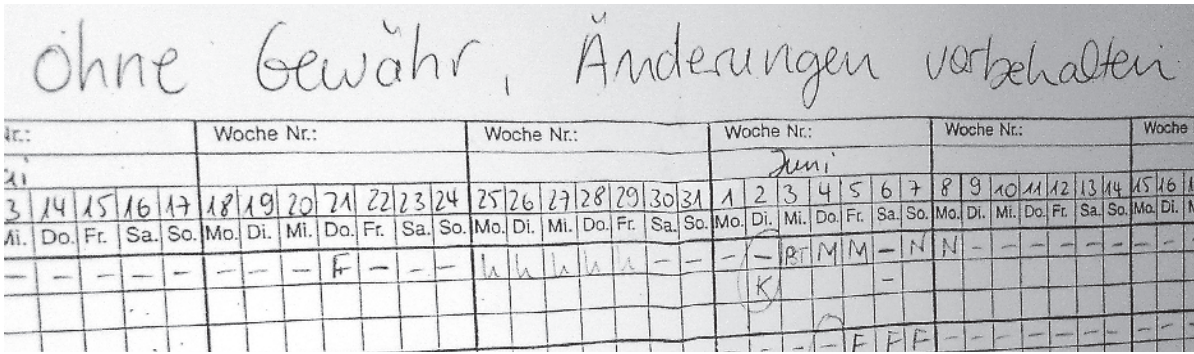 ohne Gewähr, Änderungen vorbehalten
Nr.: Woche Nr.: Woche Nr.: Woche Nr.: Woche Nr.: Woche
Juni
3 14 15 16 17 18 19 20 21 22 23 24 25 26 27 28 29 30 31 1 2 3 4 5 6 7 8 9 10 11 12 13 14 15 16 1
Mi. Do. Fr. Sa. So. Mo. Di. Mi. Do. Fr. Sa. So. Mo. Di. Mi. Do. Fr. Sa. So. Mo. Di. Mi. Do. Fr. Sa. So. Mo. Di. Mi. Do. Fr. Sa. So. Mo. Di. M
- - - - - - - - F - - - h h h h h - - - - BT M M - N N - - - - - - - - -
K -
- - - - F F F - - - - - - - - -